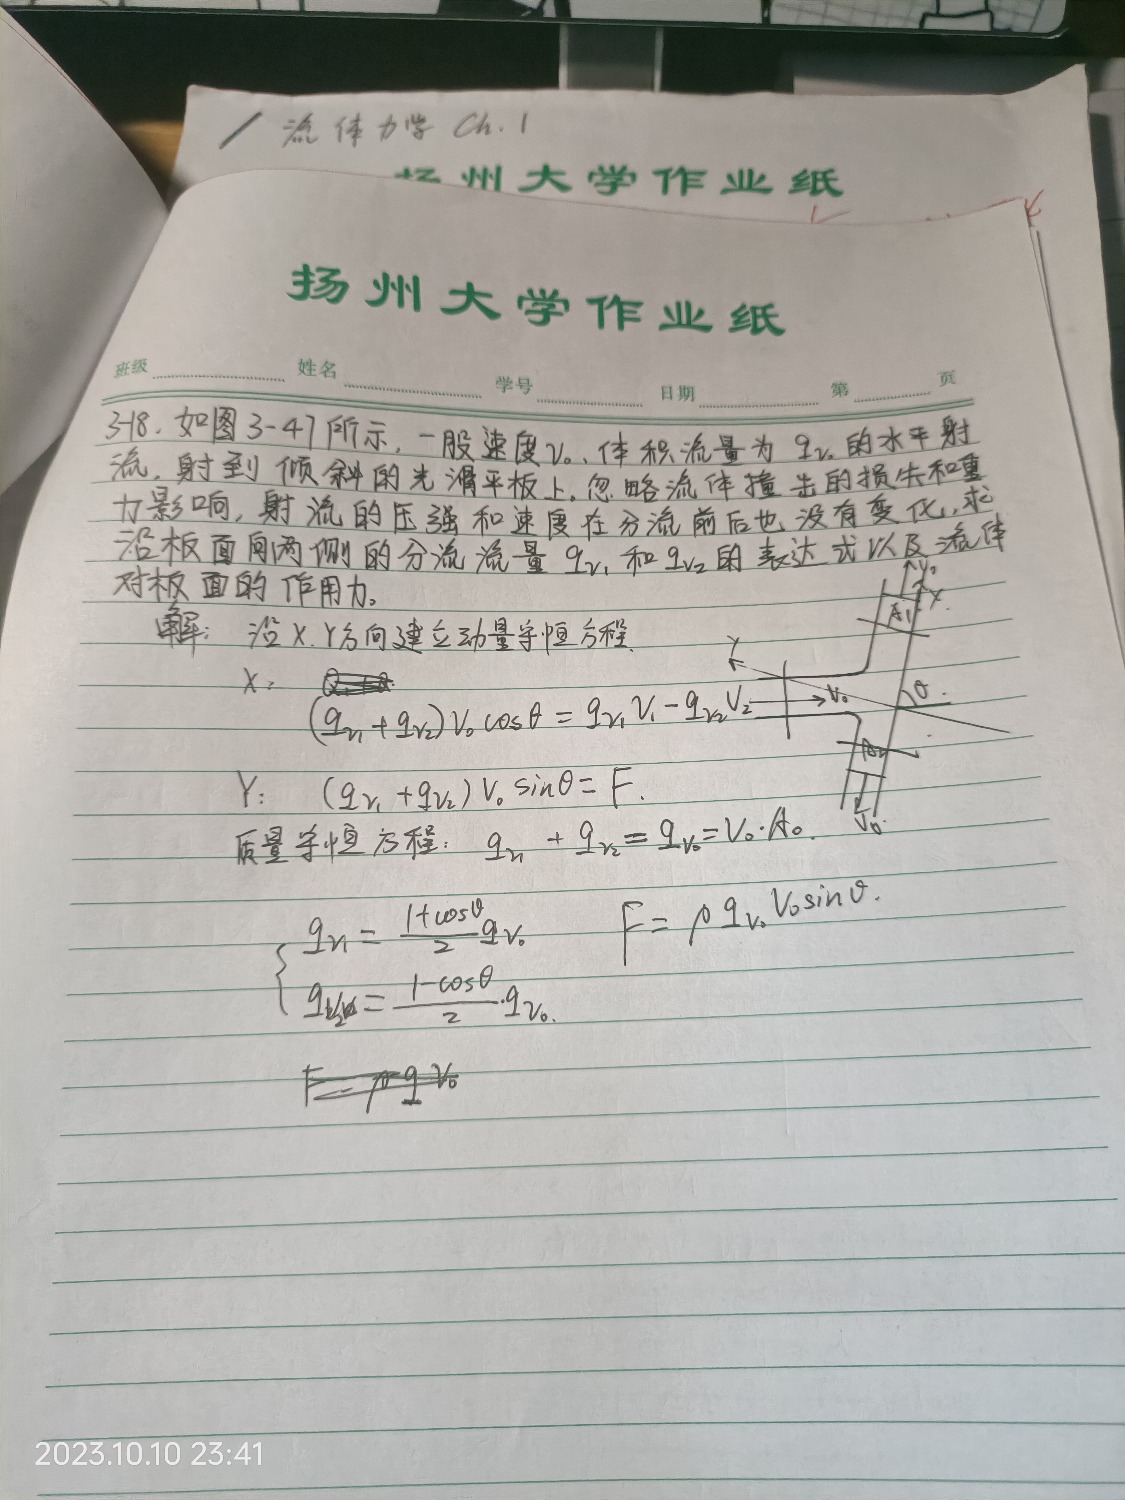 流体力学 Ch. 1
扬州大学作业纸
扬州大学作业纸
班级 姓名 学号 日期 第 页
3-18. 如图3-47所示, 一股速度V₀、体积流量为 qV₀ 的水平射
流, 射到倾斜的光滑平板上。忽略流体撞击的损失和重
力影响, 射流的压强和速度在分流前后也没有变化, 求
沿板面向两侧的分流流量 qV₁ 和 qV₂ 的表达式以及流体
对板面的作用力。
解: 沿X.Y方向建立动量守恒方程.
X:
(qV₁+qV₂)V₀cosθ = qV₁V₁-qV₂V₂
Y: (qV₁+qV₂)V₀sinθ=F.
质量守恒方程: qV₁+qV₂=qV₀=V₀·A₀.
qV₁ = (1+cosθ)/2 qV₀
F=ρqV₀V₀sinθ.
qV₂ = (1-cosθ)/2·qV₀.
F=ρqV₀
V₀
X
A₁
Y
V₀
θ
A₂
V₀
2023.10.10 23:41